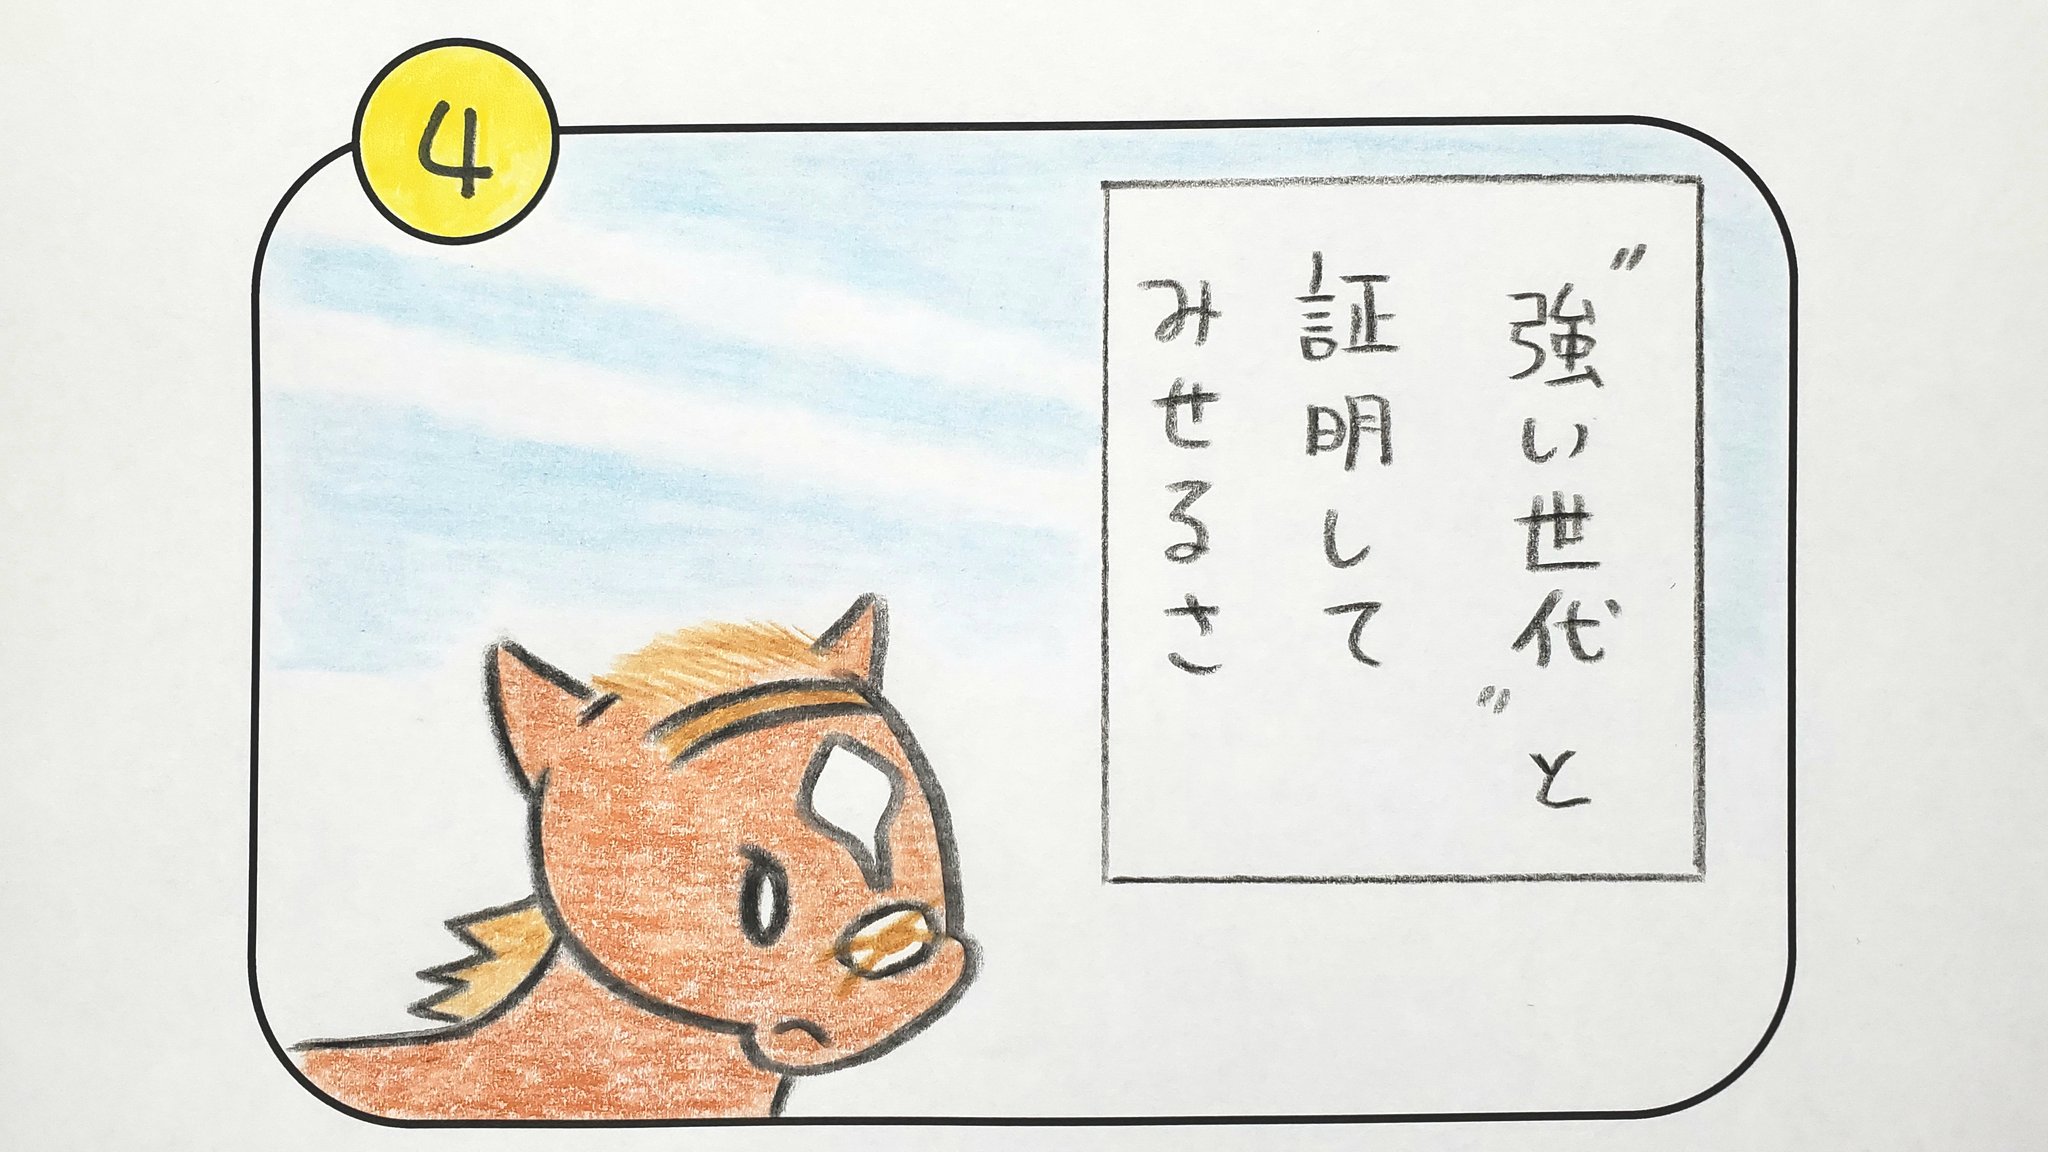 4
"強い世代"と
証明して
みせるさ